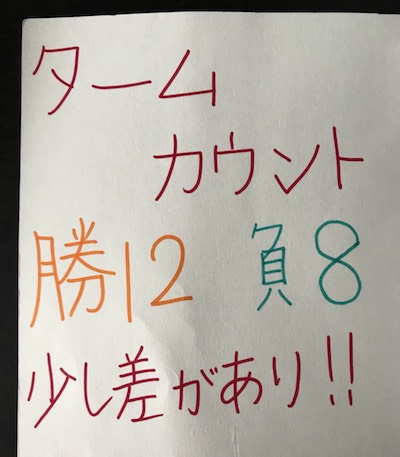 ターム
カウント
勝12 負8
少し差があり!!